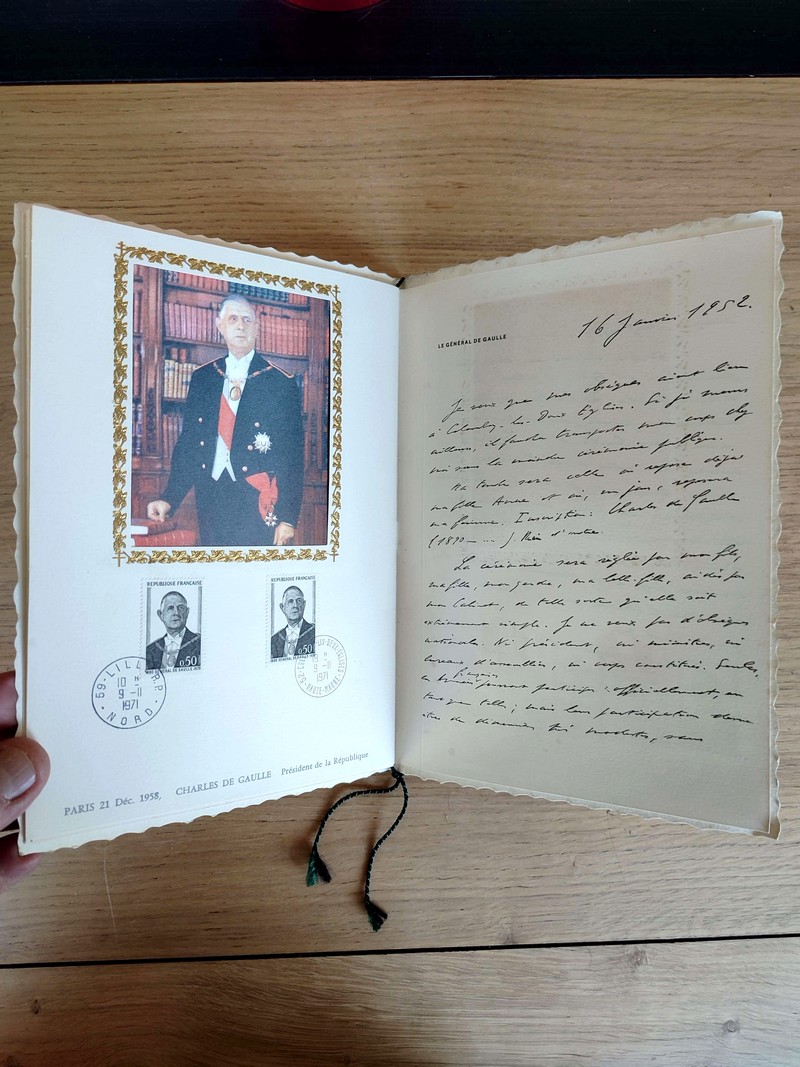 REPUBLIQUE FRANÇAISE
0,50
1890 GENERAL DE GAULLE 1970
REPUBLIQUE FRANÇAISE
0,50
1890 GENERAL DE GAULLE 1970
59 · LILLE R.P.
10 H
9 - 11
1971
NORD
52 · COLOMBEY-LES-DEUX-EGLISES
H
9 - 11
1971
HAUTE-MARNE
PARIS 21 Déc. 1958, CHARLES DE GAULLE Président de la République
LE GÉNÉRAL DE GAULLE
16 Janvier 1952.
Je veux que mes obsèques aient lieu
à Colombey-les-Deux Eglises. Si je meurs
ailleurs, il faudra transporter mon corps chez
moi sans la moindre cérémonie publique.
Ma tombe sera celle où repose déjà
ma fille Anne et où, un jour, reposera
ma femme. Inscription: Charles de Gaulle
(1890 - ... ). Rien d'autre.
La cérémonie sera réglée par mon fils,
ma fille, mon gendre, ma belle-fille, aidés par
mon Cabinet, de telle sorte qu'elle soit
extrêmement simple. Je ne veux pas d'obsèques
nationales. Ni président, ni ministres, ni
bureaux d'assemblées, ni corps constitués. Seules,
les Armées françaises pourront participer officiellement, en
tant que telles; mais leur participation devra
être de dimension très modeste, sans